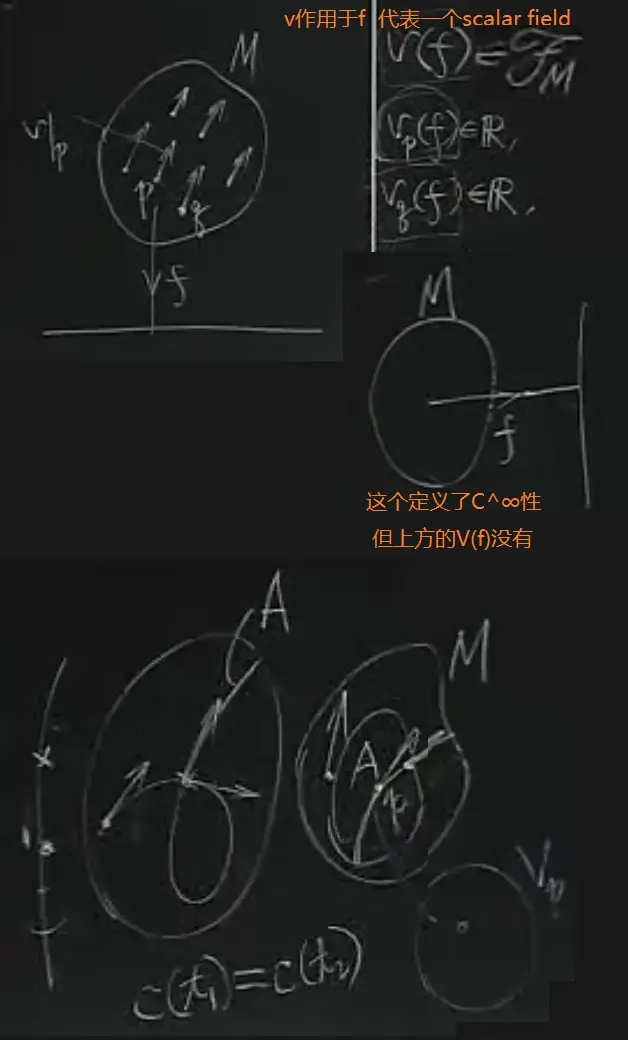 v作用于f 代表一个scalar field
M
v(f)∈ℱ_M
v|p
v_p(f)∈ℝ,
p
q
v_q(f)∈ℝ,
f
M
f
这个定义了C^∞性
但上方的V(f)没有
A
M
A
p
V_p
C(t₁)=C(t₂)